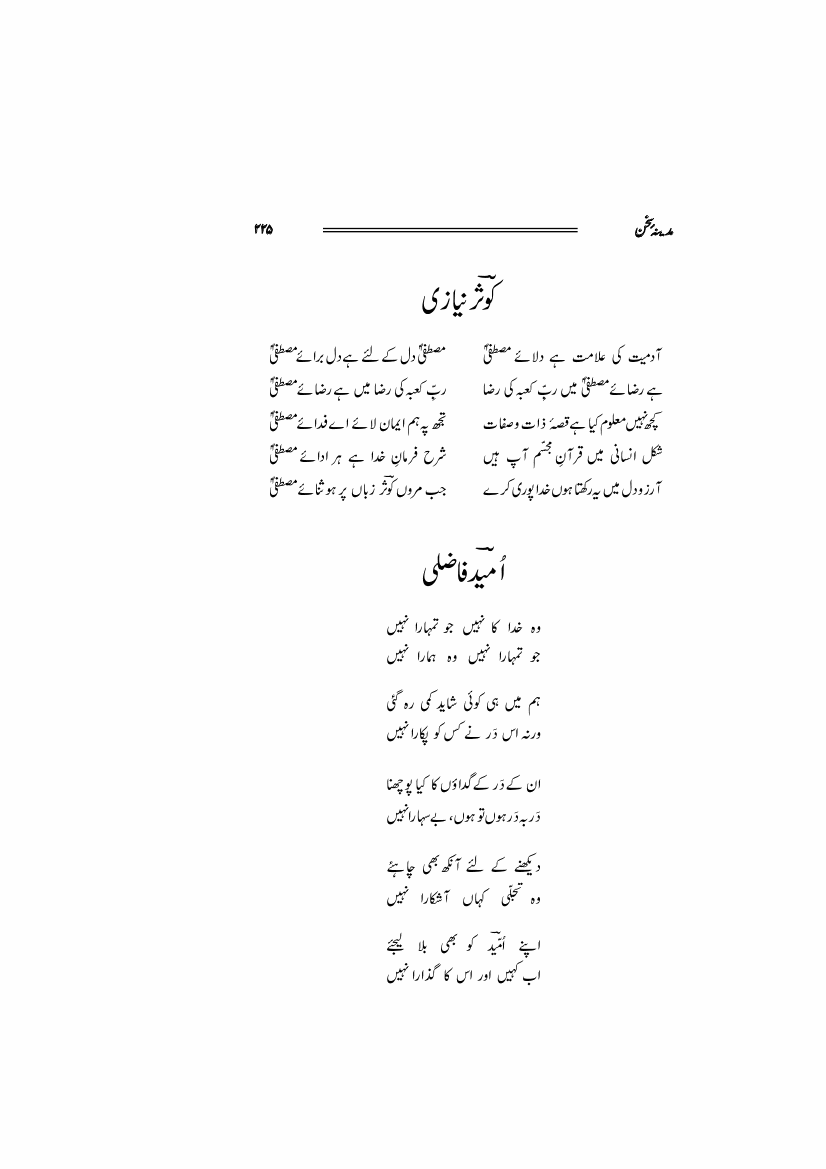 مدینۂ سخن ۲۲۵
کوثرؔ نیازی
آدمیت کی علامت ہے ولائے مصطفیؐ مصطفیؐ دل کے لئے ہے دل برائے مصطفیؐ
ہے رضائے مصطفیؐ میں ربِّ کعبہ کی رضا ربِّ کعبہ کی رضا میں ہے رضائے مصطفیؐ
کچھ نہیں معلوم کیا ہے قصۂ ذات و صفات تجھ پہ ہم ایمان لائے اے فدائے مصطفیؐ
شکل انسانی میں قرآنِ مجسّم آپ ہیں شرح فرمانِ خدا ہے ہر ادائے مصطفیؐ
آرزو دل میں یہ رکھتا ہوں خدا پوری کرے جب مروں کوثرؔ زباں پر ہو ثنائے مصطفیؐ
اُمیدؔ فاضلی
وہ خدا کا نہیں جو تمہارا نہیں
جو تمہارا نہیں وہ ہمارا نہیں
ہم میں ہی کوئی شاید کمی رہ گئی
ورنہ اس دَر نے کس کو پکارا نہیں
ان کے دَر کے گداؤں کا کیا پوچھنا
دَر بہ دَر ہوں تو ہوں، بے سہارا نہیں
دیکھنے کے لئے آنکھ بھی چاہئے
وہ تجلّی کہاں آشکارا نہیں
اپنے اُمّیدؔ کو بھی بلا لیجئے
اب کہیں اور اس کا گذارا نہیں